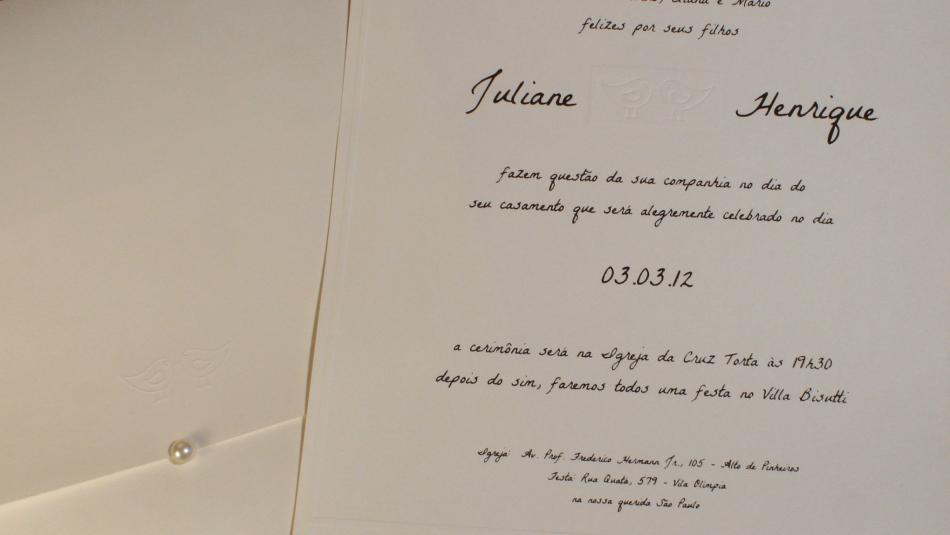 e Mário
felizes por seus filhos
Juliane Henrique
fazem questão da sua companhia no dia do
seu casamento que será alegremente celebrado no dia
03.03.12
a cerimônia será na Igreja da Cruz Torta às 19h30
depois do sim, faremos todos uma festa no Villa Bisutti
Igreja: Av. Prof. Frederico Hermann Jr., 105 - Alto de Pinheiros
Festa: Rua Quatá, 579 - Vila Olímpia
na nossa querida São Paulo